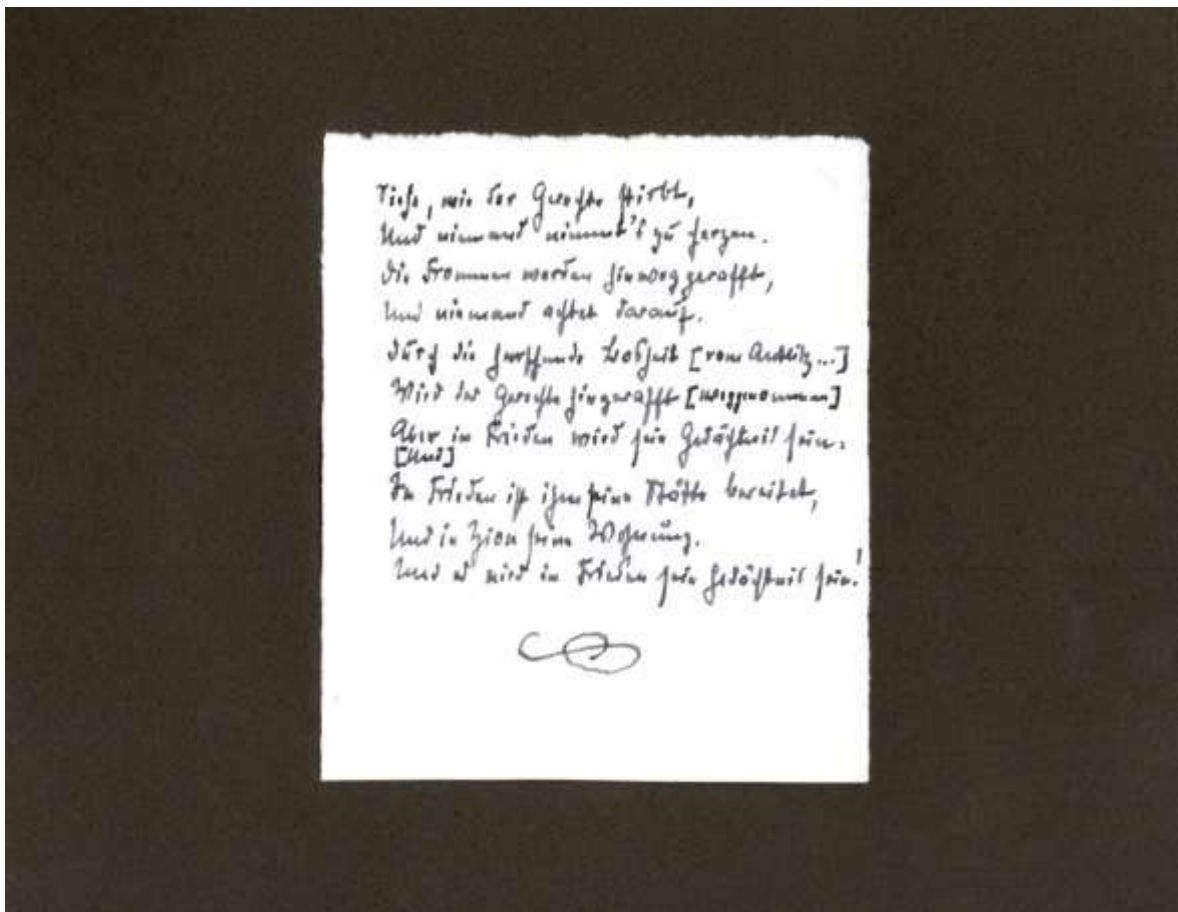 Siehe, wie der Gerechte stirbt,
Und niemand nimmt's zu herzen.
Die Frommen werden hinweggerafft,
Und niemand achtet darauf.
Durch die herrschende Bosheit [vom Antlitz...]
Wird der Gerechte hingerafft [weggenommen]
Aber in Frieden wird sein Gedächtnis sein:
[Und]
In Frieden ist ihm seine Stätte bereitet,
Und in Zion seine Wohnung.
Und es wird in Frieden sein Gedächtnis sein!